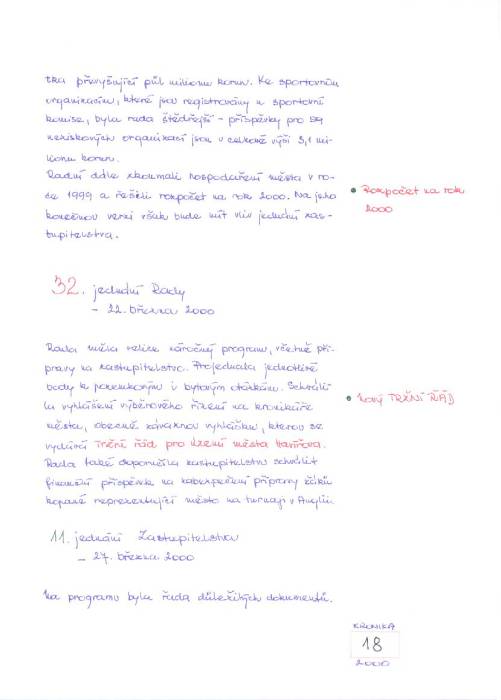 tka převyšující půl milionu korun. Ke sportovním
organizacím, které jsou registrovány u sportovní
komise, byla rada štědřejší - příspěvky pro 59
neziskových organizací jsou v celkové výši 3,1 mi-
lionu korun.
Radní dále zkoumali hospodaření města v ro-
ce 1999 a řešili rozpočet na rok 2000. Na jeho
konečnou verzi však bude mít vliv jednání zas-
tupitelstva.
• Rozpočet na rok
2000
32. jednání Rady
- 22. března 2000
Rada měla velice náročný program, včetně pří-
pravy na zastupitelstvo. Projednala jednotlivé
body k pozemkovým i bytovým otázkám. Schváli-
la vyhlášení výběrového řízení na kronikáře
města, obecně závaznou vyhlášku, kterou se
vydává Tržní řád pro území města Havířova.
Rada také doporučila zastupitelstvu schválit
finanční příspěvek na zabezpečení přípravy žáků
kopané reprezentující město na turnaji v Anglii.
• Nový TRŽNÍ ŘÁD
11. jednání Zastupitelstva
- 27. března 2000
Na programu byla řada důležitých dokumentů.
KRONIKA
18
2000